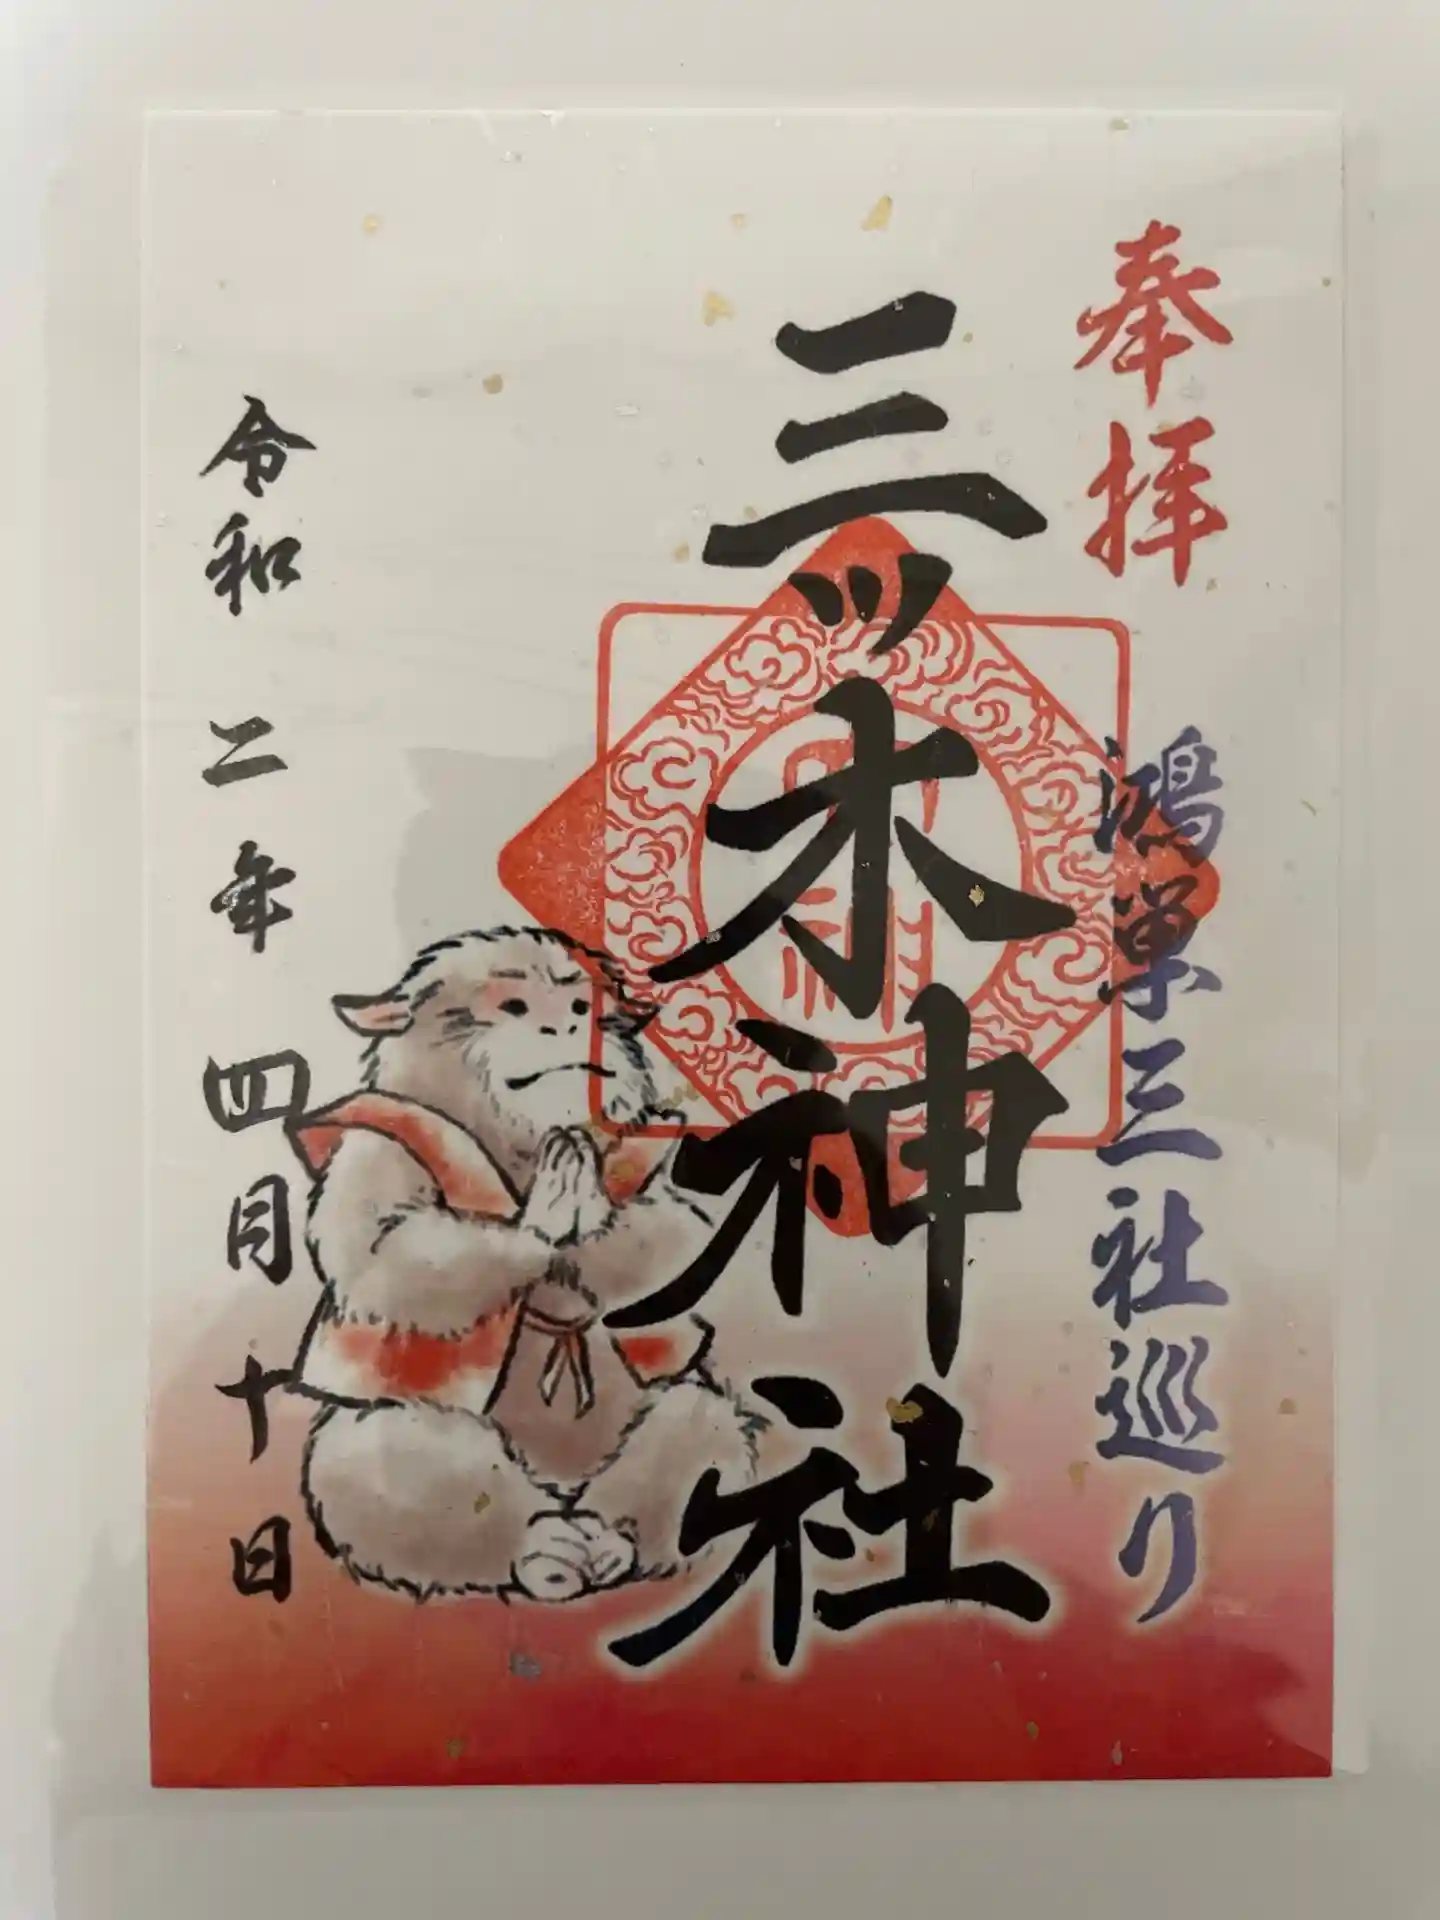 奉拝
鴻巣三社巡り
三ツ木神社
令和二年四月十日